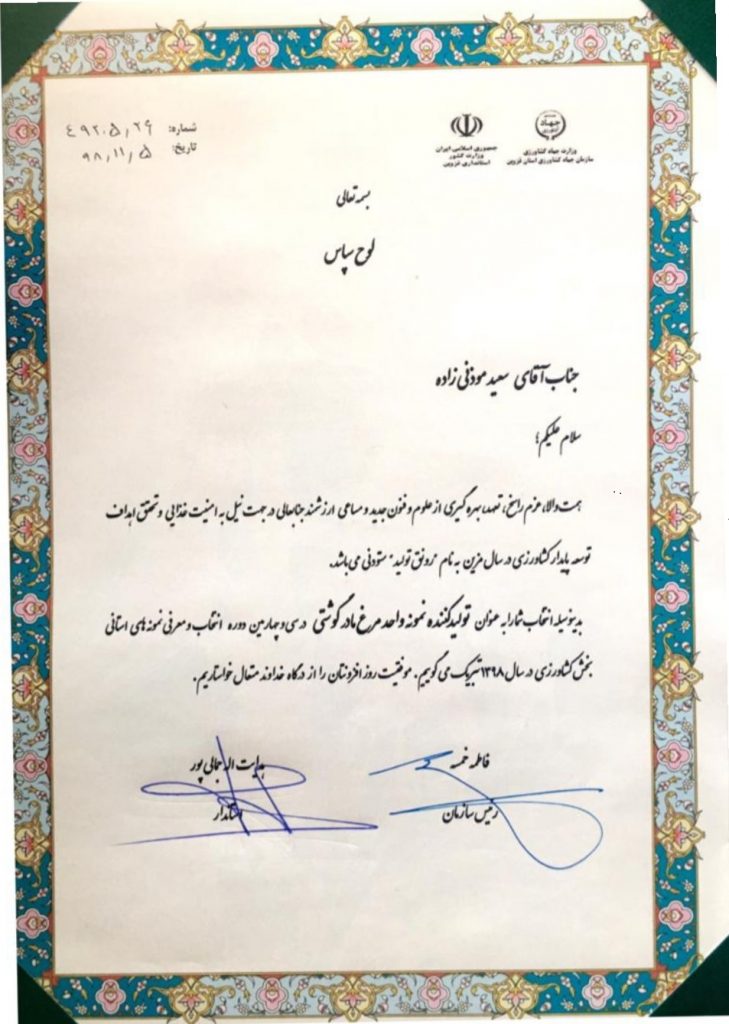 شماره: ۴۹۲۰۵,۲۶
تاریخ: ۹۸,۱۱,۵
جهاد
وزارت جهاد کشاورزی
سازمان جهاد کشاورزی استان قزوین
جمهوری اسلامی ایران
وزارت کشور
استانداری قزوین
بسمه تعالی
لوح سپاس
جناب آقای سعید موذنی زاده
سلام علیکم؛
همت والا، عزم راسخ، تعهد، بهره گیری از علوم و فنون جدید و مساعی ارزشمند جنابعالی در جهت نیل به امنیت غذایی و تحقق اهداف
توسعه پایدار کشاورزی در سال مزین به نام "رونق تولید" ستودنی می باشد.
بدینوسیله انتخاب شما را به عنوان تولیدکننده نمونه واحد مرغ مادر گوشتی در سی و چهارمین دوره انتخاب و معرفی نمونه های استانی
بخش کشاورزی در سال ۱۳۹۸ تبریک می گوییم. موفقیت روز افزونتان را از درگاه خداوند متعال خواستاریم.
فاطمه خمسه
رئیس سازمان
هدایت اله جمالی پور
استاندار